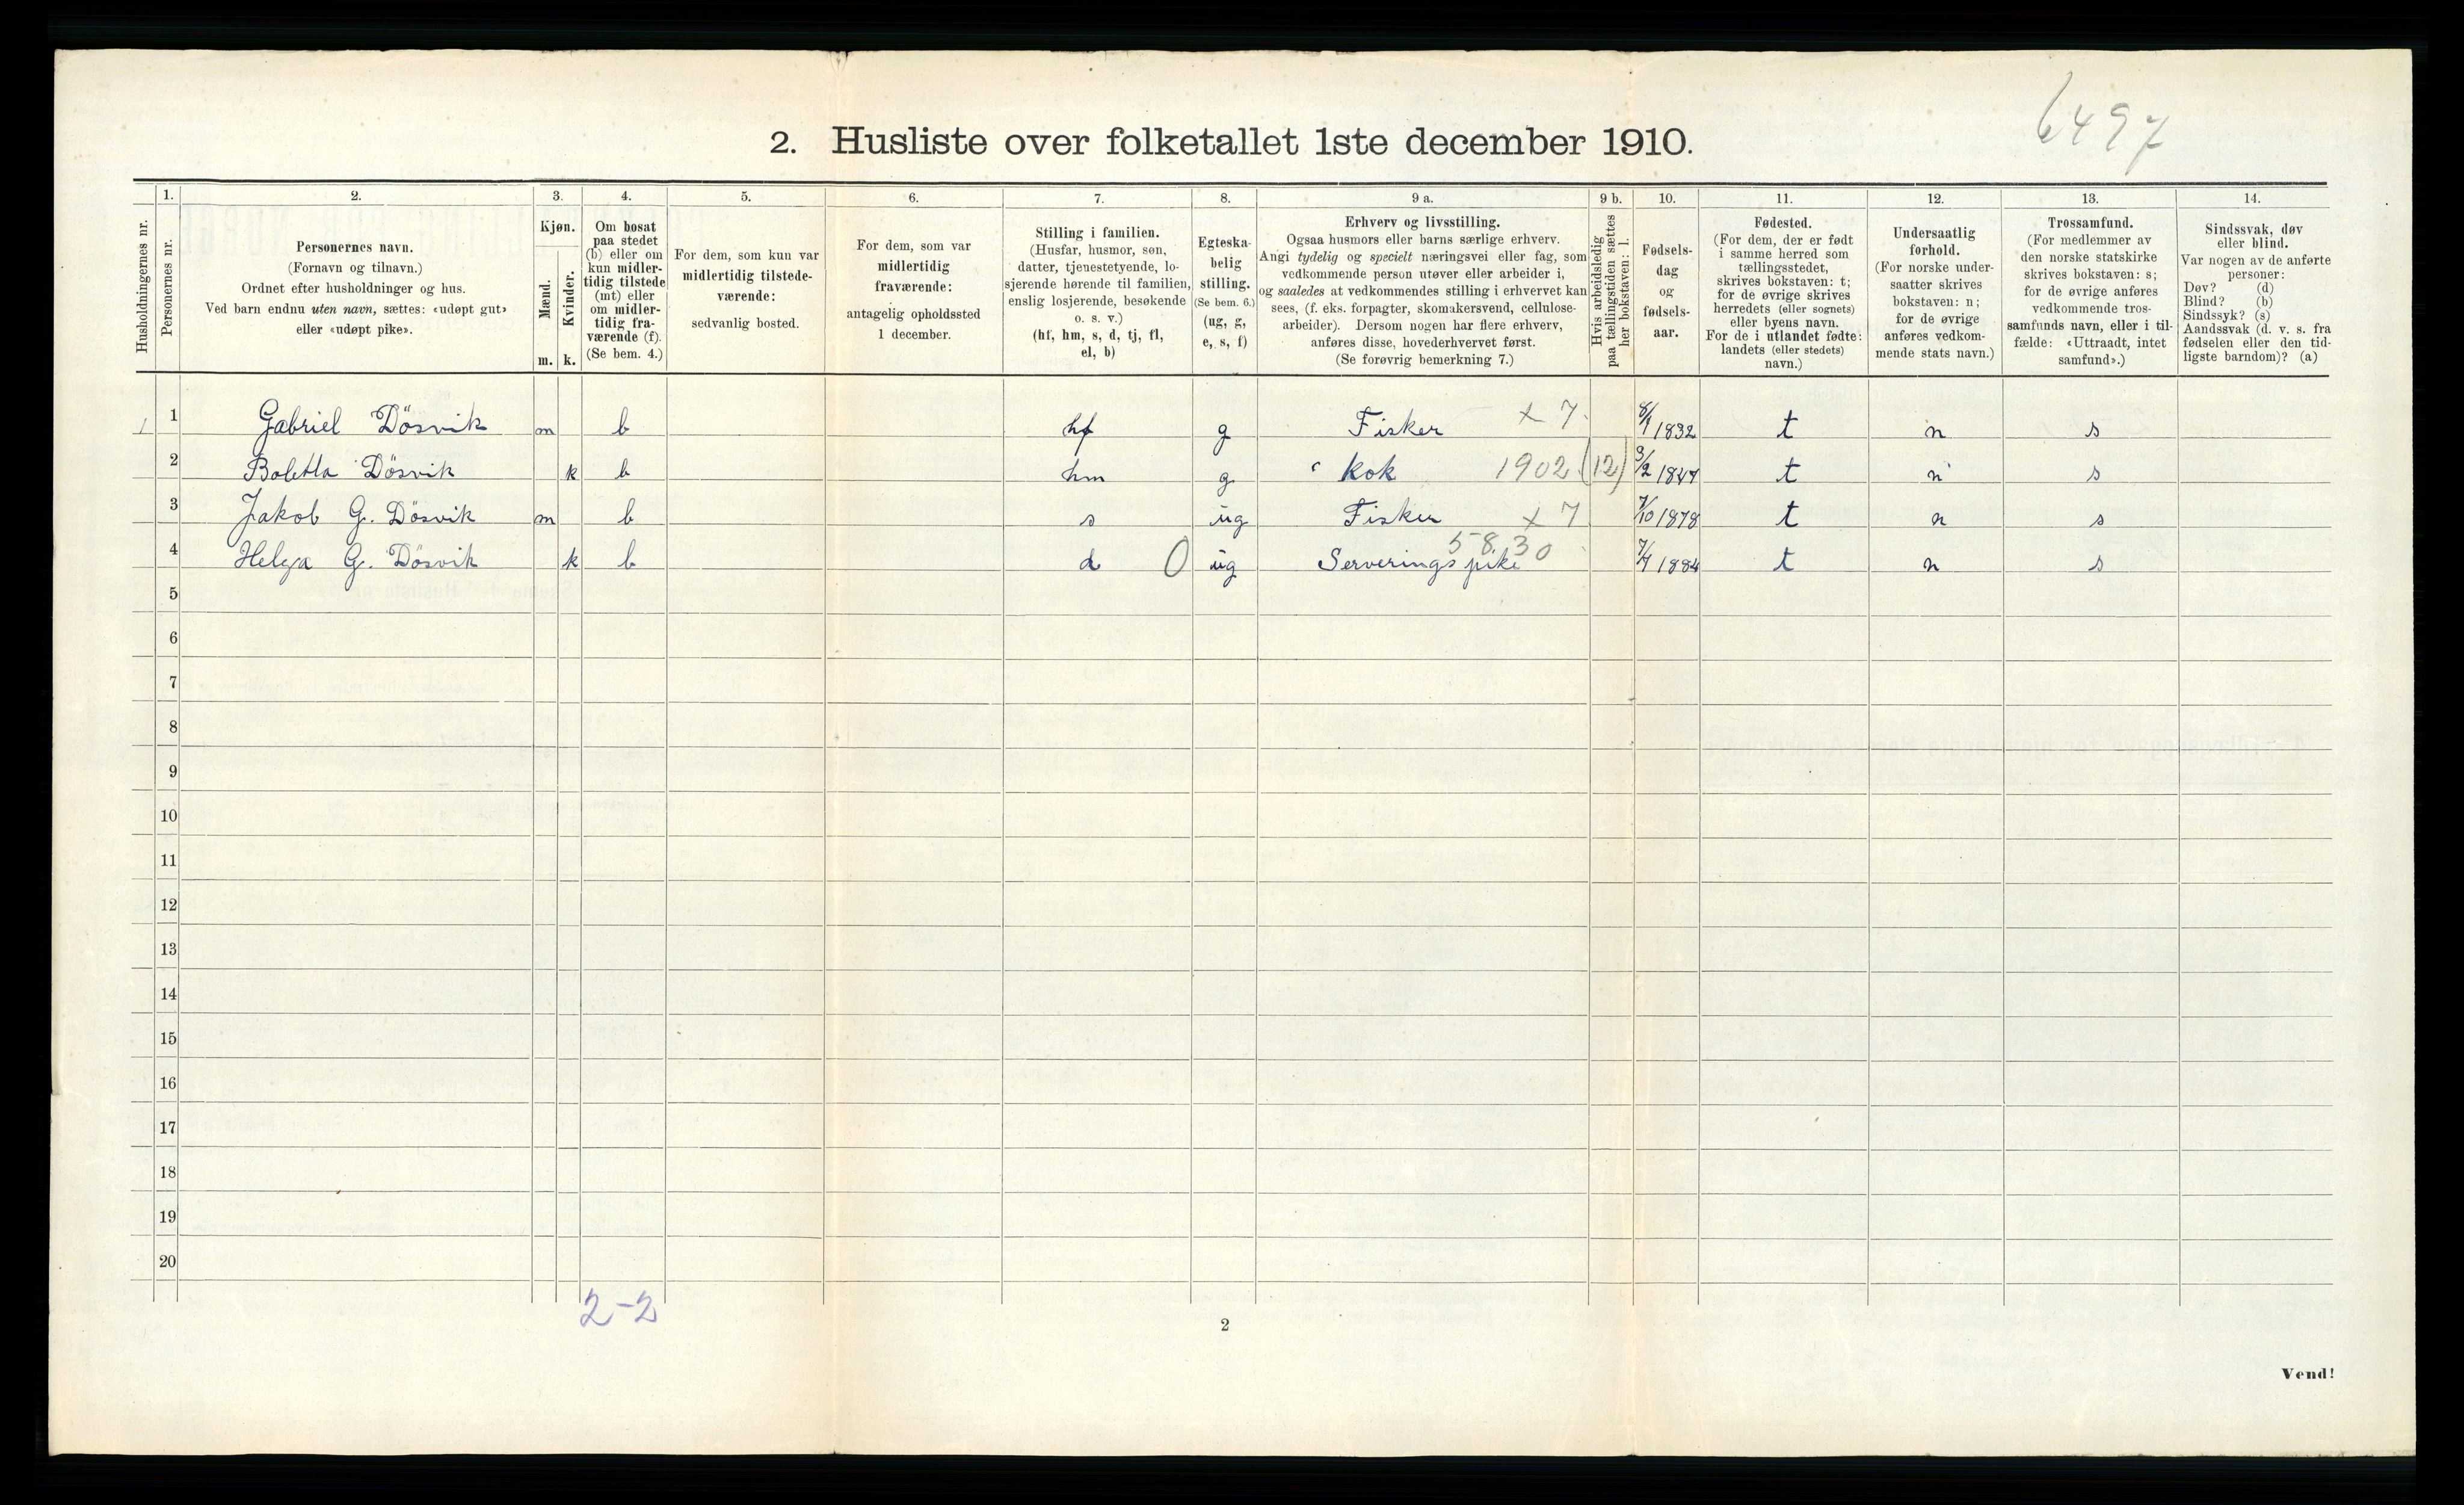 6497
2. Husliste over folketallet 1ste december 1910.
Husholdningernes nr.
1.
Personernes nr.
2.
Personernes navn.
(Fornavn og tilnavn.)
Ordnet efter husholdninger og hus.
Ved barn endnu uten navn, sættes: «udøpt gut»
eller «udøpt pike».
3.
Kjøn.
Mænd.
Kvinder.
m.
k.
4.
Om bosat
paa stedet
(b) eller om
kun midler-
tidig tilstede
(mt) eller
om midler-
tidig fra-
værende (f).
(Se bem. 4.)
5.
For dem, som kun var
midlertidig tilstede-
værende:
sedvanlig bosted.
6.
For dem, som var
midlertidig
fraværende:
antagelig opholdssted
1 december.
7.
Stilling i familien.
(Husfar, husmor, søn,
datter, tjenestetyende, lo-
sjerende hørende til familien,
enslig losjerende, besøkende
o. s. v.)
(hf, hm, s, d, tj, fl,
el, b)
8.
Egteska-
belig
stilling.
(Se bem. 6.)
(ug, g,
e, s, f)
9 a.
Erhverv og livsstilling.
Ogsaa husmors eller barns særlige erhverv.
Angi tydelig og specielt næringsvei eller fag, som
vedkommende person utøver eller arbeider i,
og saaledes at vedkommendes stilling i erhvervet kan
sees, (f. eks. forpagter, skomakersvend, cellulose-
arbeider). Dersom nogen har flere erhverv,
anføres disse, hovederhvervet først.
(Se forøvrig bemerkning 7.)
9 b.
Hvis arbeidsledig
paa tællingstiden sættes
her bokstaven: l.
10.
Fødsels-
dag
og
fødsels-
aar.
11.
Fødested.
(For dem, der er født
i samme herred som
tællingsstedet,
skrives bokstaven: t;
for de øvrige skrives
herredets (eller sognets)
eller byens navn.
For de i utlandet fødte:
landets (eller stedets)
navn.)
12.
Undersaatlig
forhold.
(For norske under-
saatter skrives
bokstaven: n;
for de øvrige
anføres vedkom-
mende stats navn.)
13.
Trossamfund.
(For medlemmer av
den norske statskirke
skrives bokstaven: s;
for de øvrige anføres
vedkommende tros-
samfunds navn, eller i til-
fælde: «Uttraadt, intet
samfund».)
14.
Sindssvak, døv
eller blind.
Var nogen av de anførte
personer:
Døv? (d)
Blind? (b)
Sindssyk? (s)
Aandssvak (d. v. s. fra
fødselen eller den tid-
ligste barndom)? (a)
1 1 Gabriel Dösvik m b hf g Fisker x 7. 1832 t n s
2 Boletta Dösvik k b hm g kok 1902 (12) 3/2 1847 t n s
3 Jakob G. Dösvik m b s ug Fisker x 7 7/10 1878 t n s
4 Helga G. Dösvik k b d 0 ug Serveringspike 58.30 1884 t n s
5
6
7
8
9
10
11
12
13
14
15
16
17
18
19
20
2-2
2
Vend!